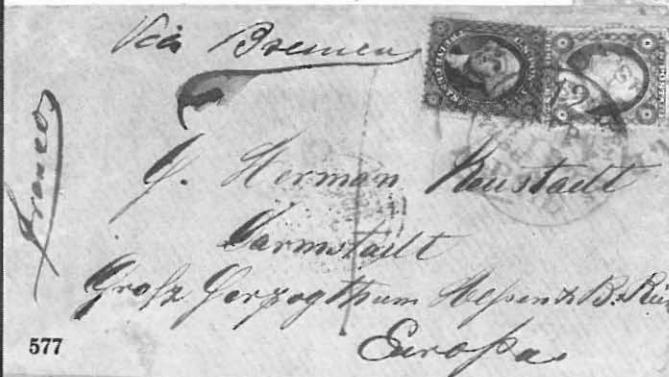 Via Bremen
franco
G. Herman Neustadt
Darmstadt
Grosz Herzogthum Hessen & B. Rhei
Europa
577